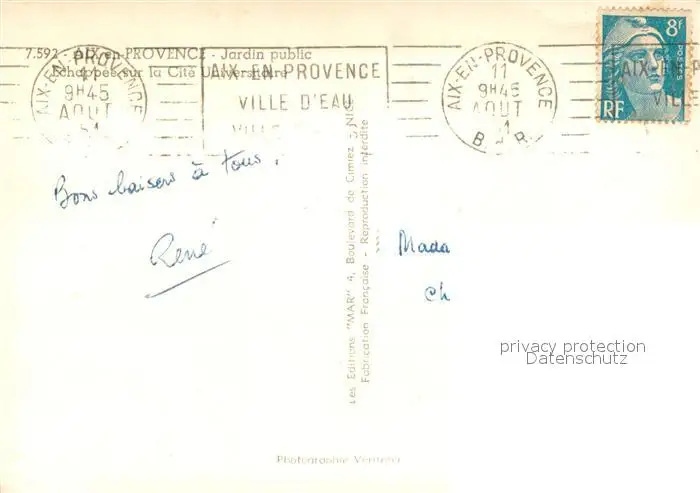 7.592 - AIX-en-PROVENCE - Jardin public
Echappée sur la Cité Universitaire
AIX-EN-PROVENCE
9H45
AOUT
AIX-EN-PROVENCE
VILLE D'EAU
VILLE
AIX-EN-PROVENCE
11
9H45
AOUT
B. D. R.
8F
POSTES
RF
AIX-EN-P
VIL
Bons baisers à tous.
René
Les Editions "MAR" 4, Boulevard de Cimiez
Fabrication Française - Reproduction interdite
Mada
Ch
privacy protection
Datenschutz
Photographie